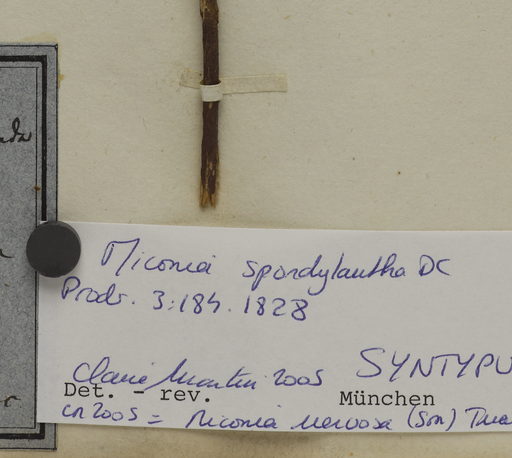 Miconia spondylantha DC
Prodr. 3:184. 1828
SYNTYPU
Claire Martin 2005
Det. - rev. München
in 2005 = Miconia nervosa (Sm) Tria